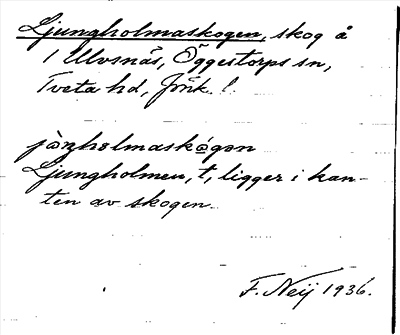 Ljungholmaskogen, skog å
1 Ulvsnäs, Öggestorps sn,
Tveta hd, Jönk. l.
Ljungholmen, t, ligger i kan-
ten av skogen.
F. Neij 1936.